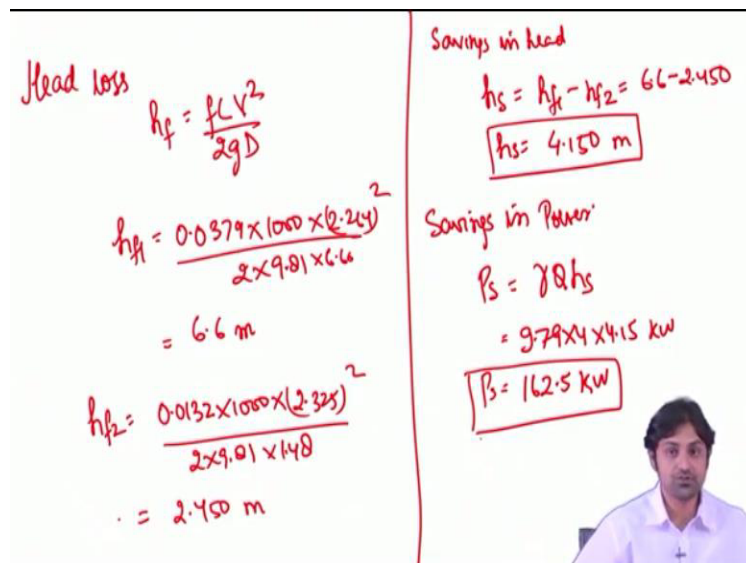 Head loss
hf = fLV²/2gD
hf1 = 0.0379×1000×(2.264)²/2×9.81×6.60
= 6.6 m
hf2 = 0.0132×1000×(2.325)²/2×9.81×1.48
= 2.450 m
Savings in head
hs = hf1 - hf2 = 6.6-2.450
hs= 4.150 m
Savings in Power
Ps = γQhs
= 9.79×4×4.15 KW
Ps = 162.5 KW